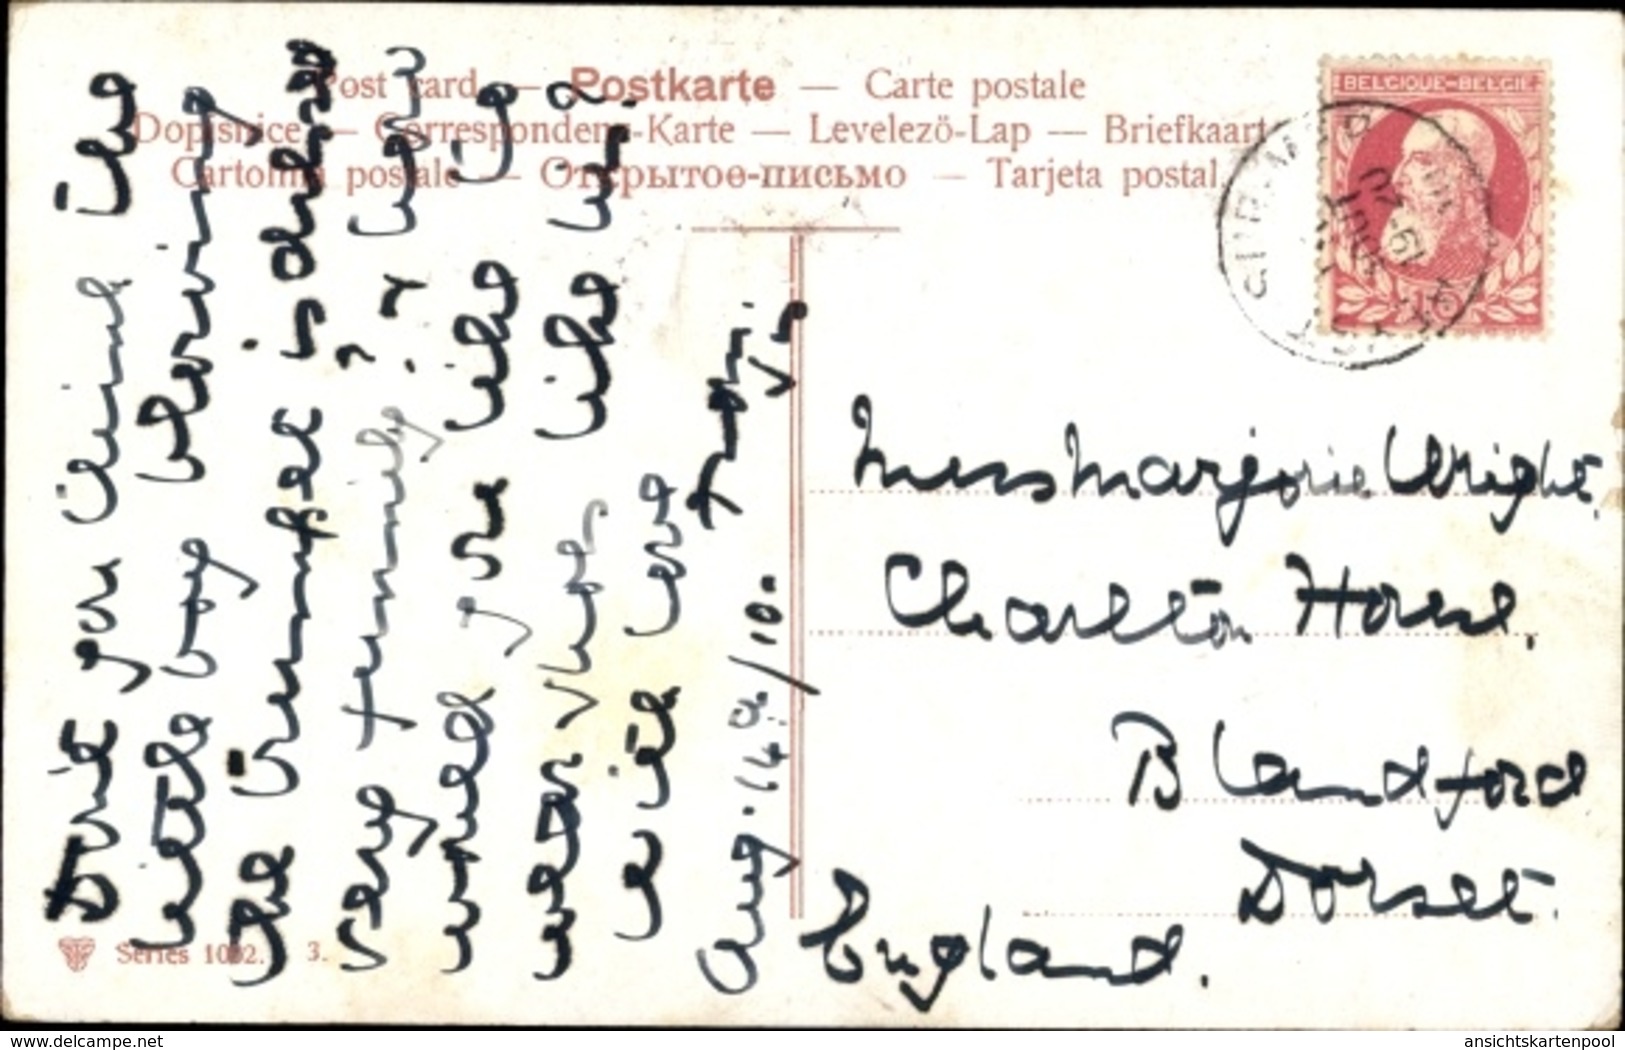 Post card — Postkarte — Carte postale
Dopisnice — Correspondenz-Karte — Levelezö-Lap — Briefkaart
Cartolina postale — Открытое-письмо — Tarjeta postal.
BELGIQUE-BELGIË
Don't you think the
little boy blowing
the trumpet is dressed
very funnily? I
would you like to
wear shoes like his?
with love from
Aug. 14th/10.
Miss Marjorie Wright.
Charlton House.
Blandford
Dorset.
England.
Series 1002. 3.
www.delcampe.net
ansichtskartenpool